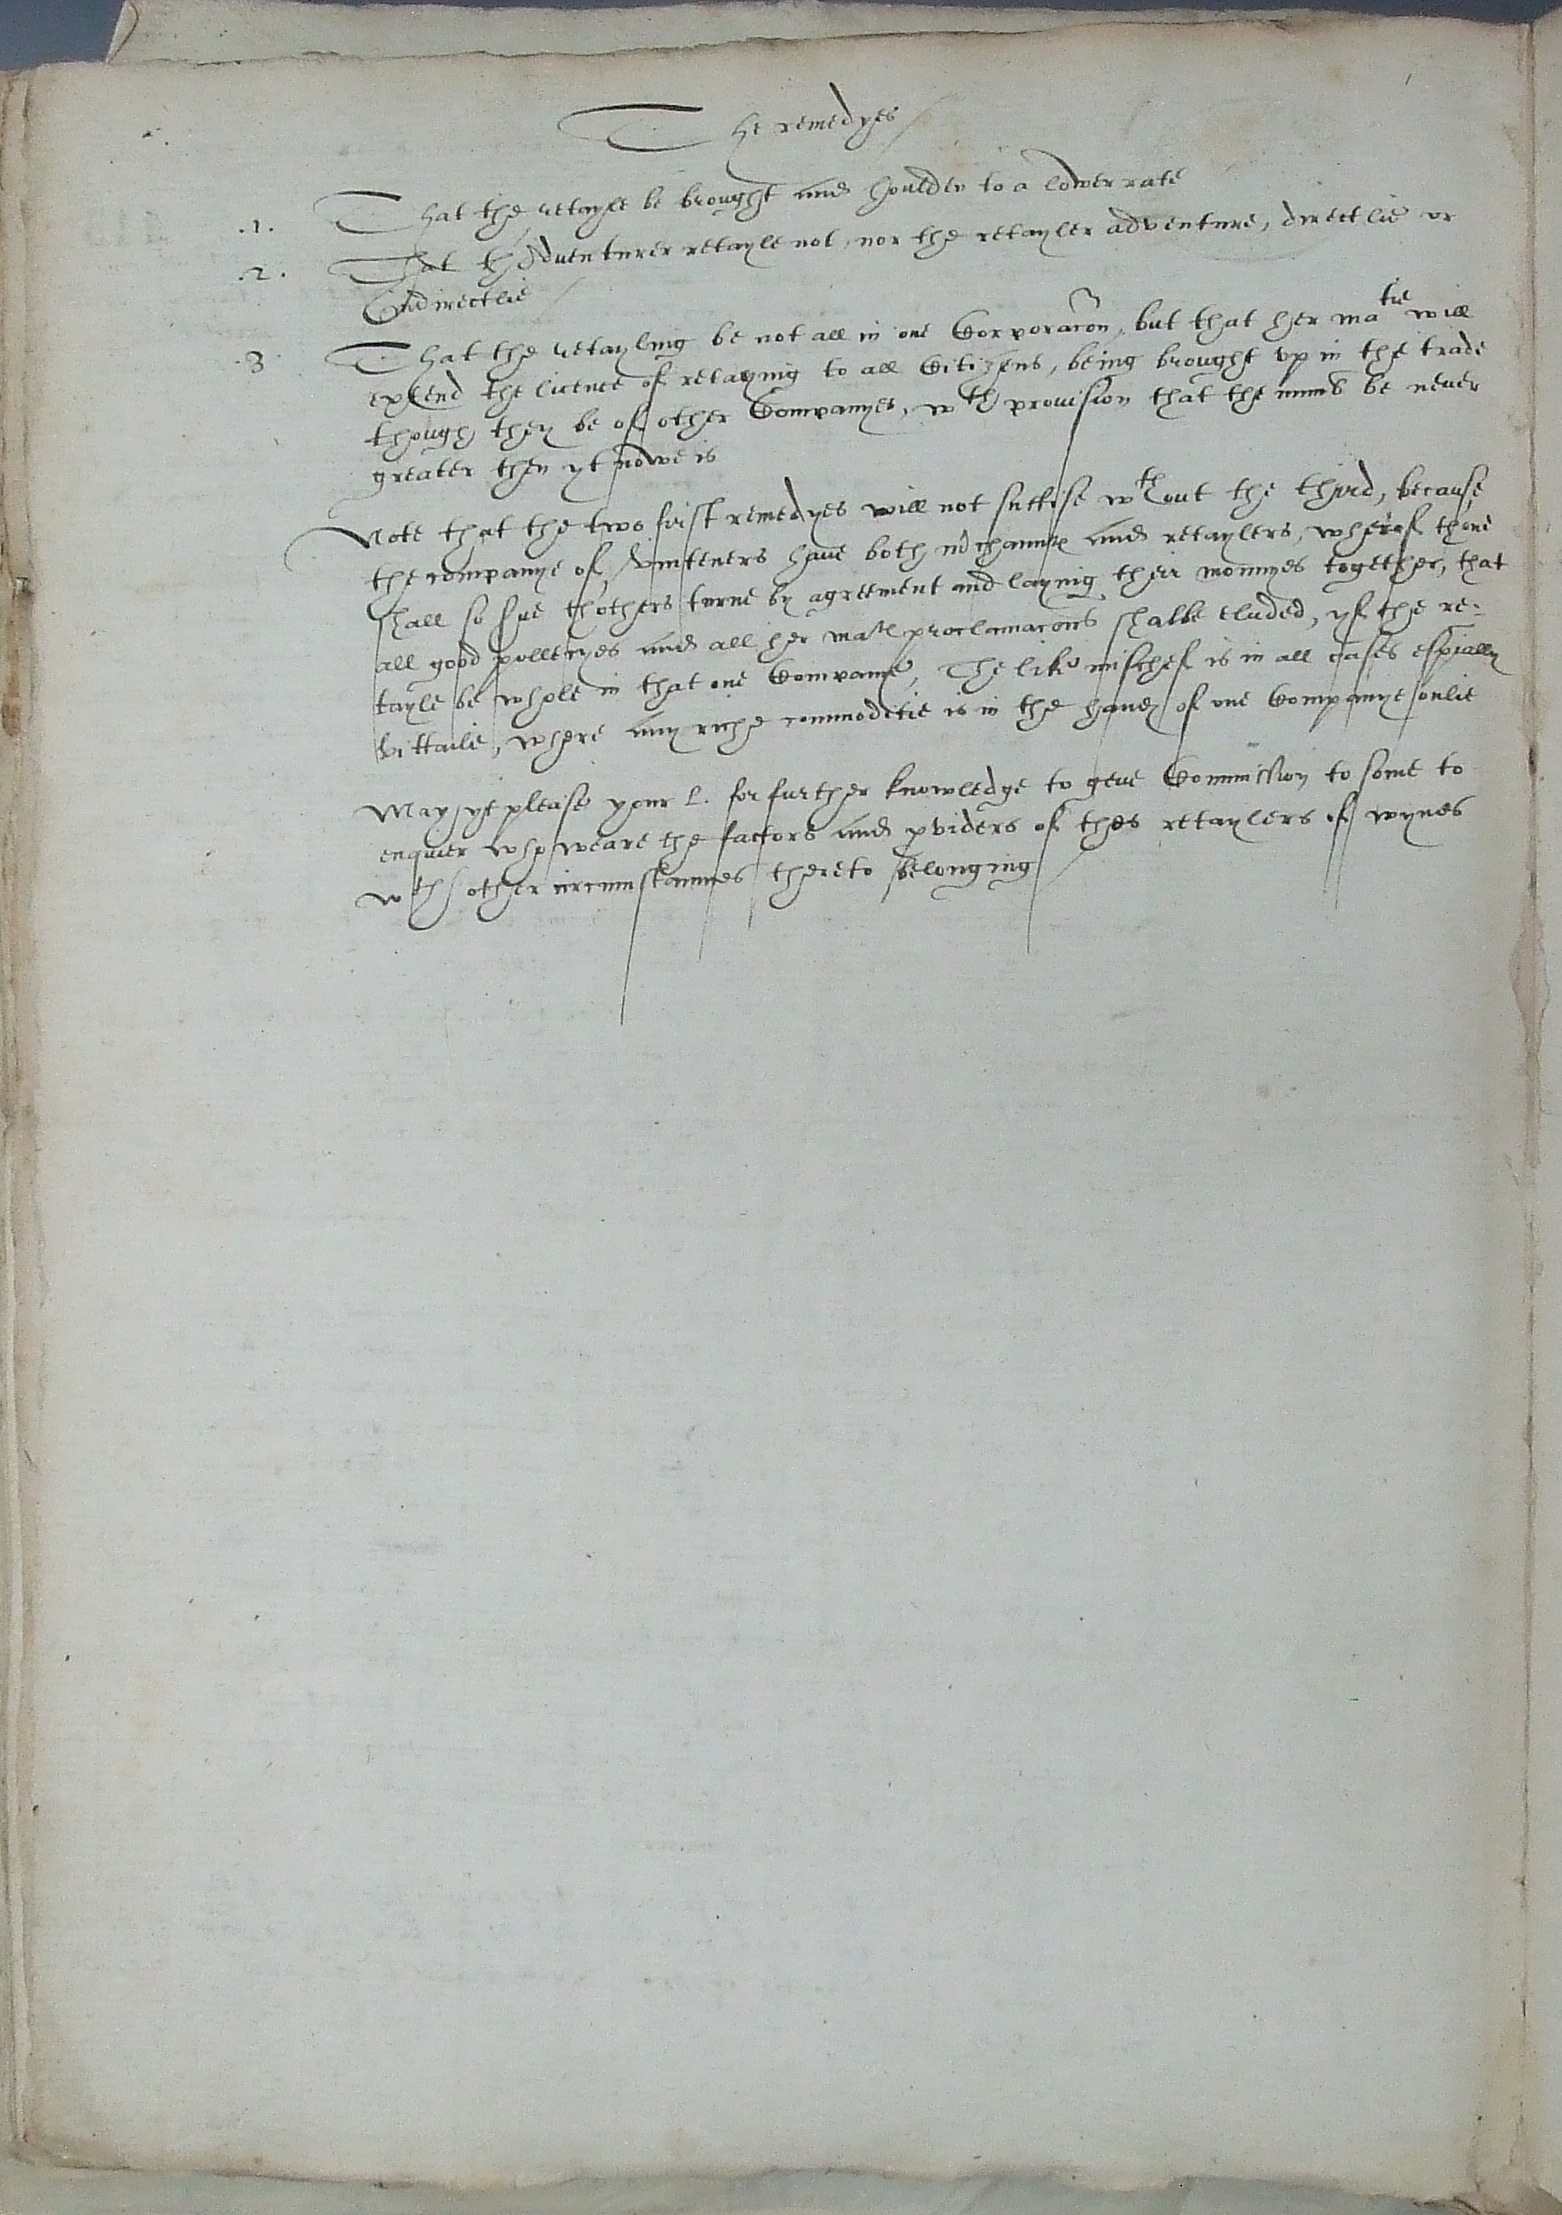 The remedyes
.1. That the retayle be brought and houlden to a lower rate
.2. That thAduenturer retayle not, nor the retayler adventure, directlie or
Indirectlie
.3. That the retayling be not all in one Corporac̃on, but that her matie will
extend the licence of retayling to all Citizens, being brought vp in the trade
though they be of other Companyes, wth provision that the numb be never
greater then yt nowe is
Note that the two first remedyes will not suffise wthout the third, because
the companye of vinteners have both m̃chauntℯ and retaylers, wherof thone
shall so sue thothers turne by agreement and layinig their monnyes together, that
all good pollecyes and all her matℯ proclamac̃ons shalbe eluded, yf the re-
tayle be whole in that one Companie, The like mischef is in all cases espially
vittaile, where any riche commoditie is in the handℯ of one Companye onlie
May yt please your L. for further knowledge to geve Commission to some to
enquier who weare the factors and pviders of thes retaylers of wynes
wth other circumstaunces thereto belonging